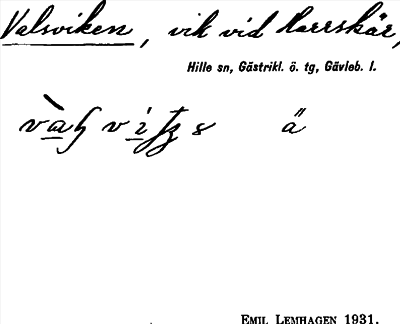 Valsviken, vik vid Harrskär,
Hille sn, Gästrikl. ö. tg, Gävleb. l.
ä
EMIL LEMHAGEN 1931.